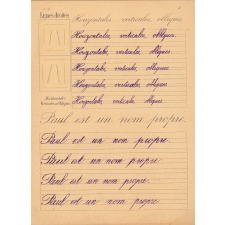 Lignes droites
Horizontales, verticales, obliques
Horizontales, verticales, obliques.
Horizontales, verticales, obliques.
Horizontales, verticales, obliques.
Horizontales, verticales, obliques.
Horizontales
Verticales obliques
Paul est un nom propre.
Paul est un nom propre.
Paul est un nom propre
Paul est un nom propre.
Paul est un nom propre